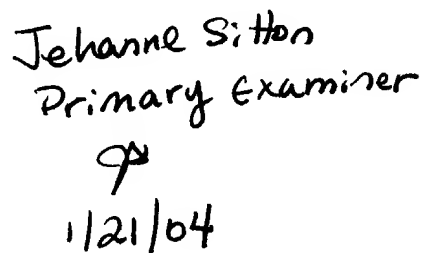 Jehanne Sitton
Primary Examiner
1/21/04